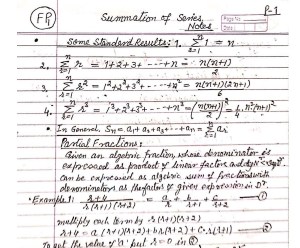 P-1
FP1 Summation of Series
Notes
• Some Standard Results: 1. Σ 1 = n
2. Σ r = 1+2+3+ ---- +n = n(n+1)/2
3. Σ r² = 1²+2²+3²+ ---- +n² = n(n+1)(2n+1)/6
4. Σ r³ = 1³+2³+3³+ ---- +n³ = (n(n+1)/2)² = 1/4 n²(n+1)²
• In General Sn = a1+a2+a3+ --- +an = Σ ar
Partial Fractions:
Given an algebraic fraction, whose denominator is
expressed as product of linear factors and
can be expressed as algebraic sum of fractions with
denominators as the factors of given expression in
• Example 1: r+4 / r(r+1)(r+2) = a/r + b/r+1 + c/r+2 — ①
multiply each term by r(r+1)(r+2)
r+4 = a(r+1)(r+2) + br(r+2) + c.r(r+1) — ②
To get the value of 'a' put r=0 in ②